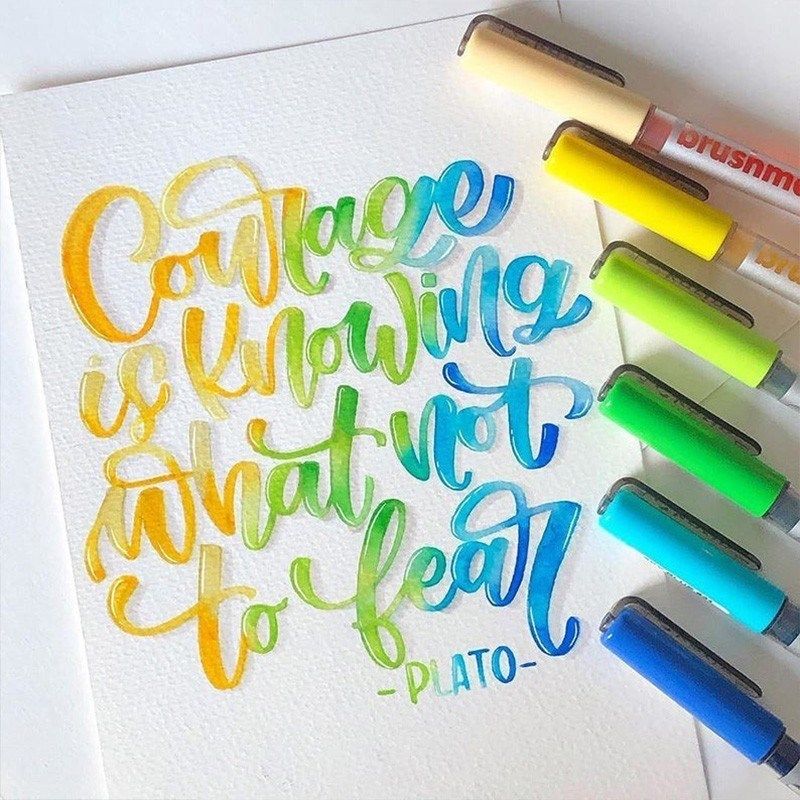 Courage
is knowing
what not
to fear
-PLATO-
brushm